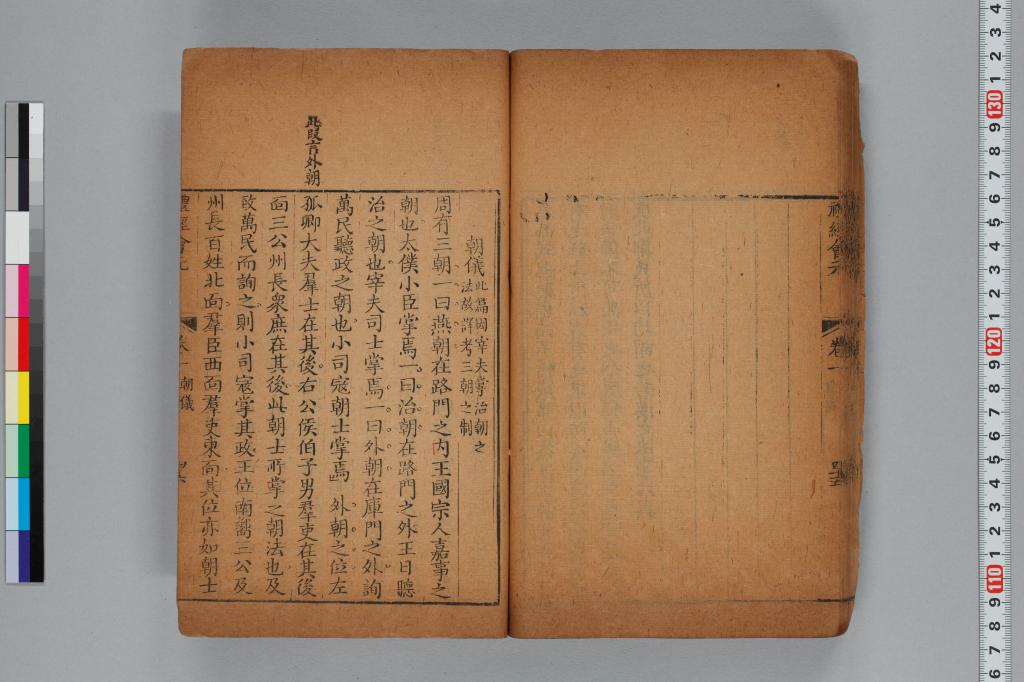 禮經會元
卷一
朝儀
此篇因宰夫掌治朝之
法故詳考三朝之制
周有三朝一曰燕朝在路門之内王國宗人嘉事之
朝也太僕小臣掌焉一曰治朝在路門之外王日聽
治之朝也宰夫司士掌焉一曰外朝在庫門之外詢
萬民聽政之朝也小司寇朝士掌焉外朝之位左
此段言外朝
孤卿大夫羣士在其後右公侯伯子男羣吏在其後
面三公州長衆庶在其後此朝士所掌之朝法也及
致萬民而詢之則小司寇掌其政王位南嚮三公及
州長百姓北面羣臣西面羣吏東面其位亦如朝士
禮經會元
卷一
朝儀